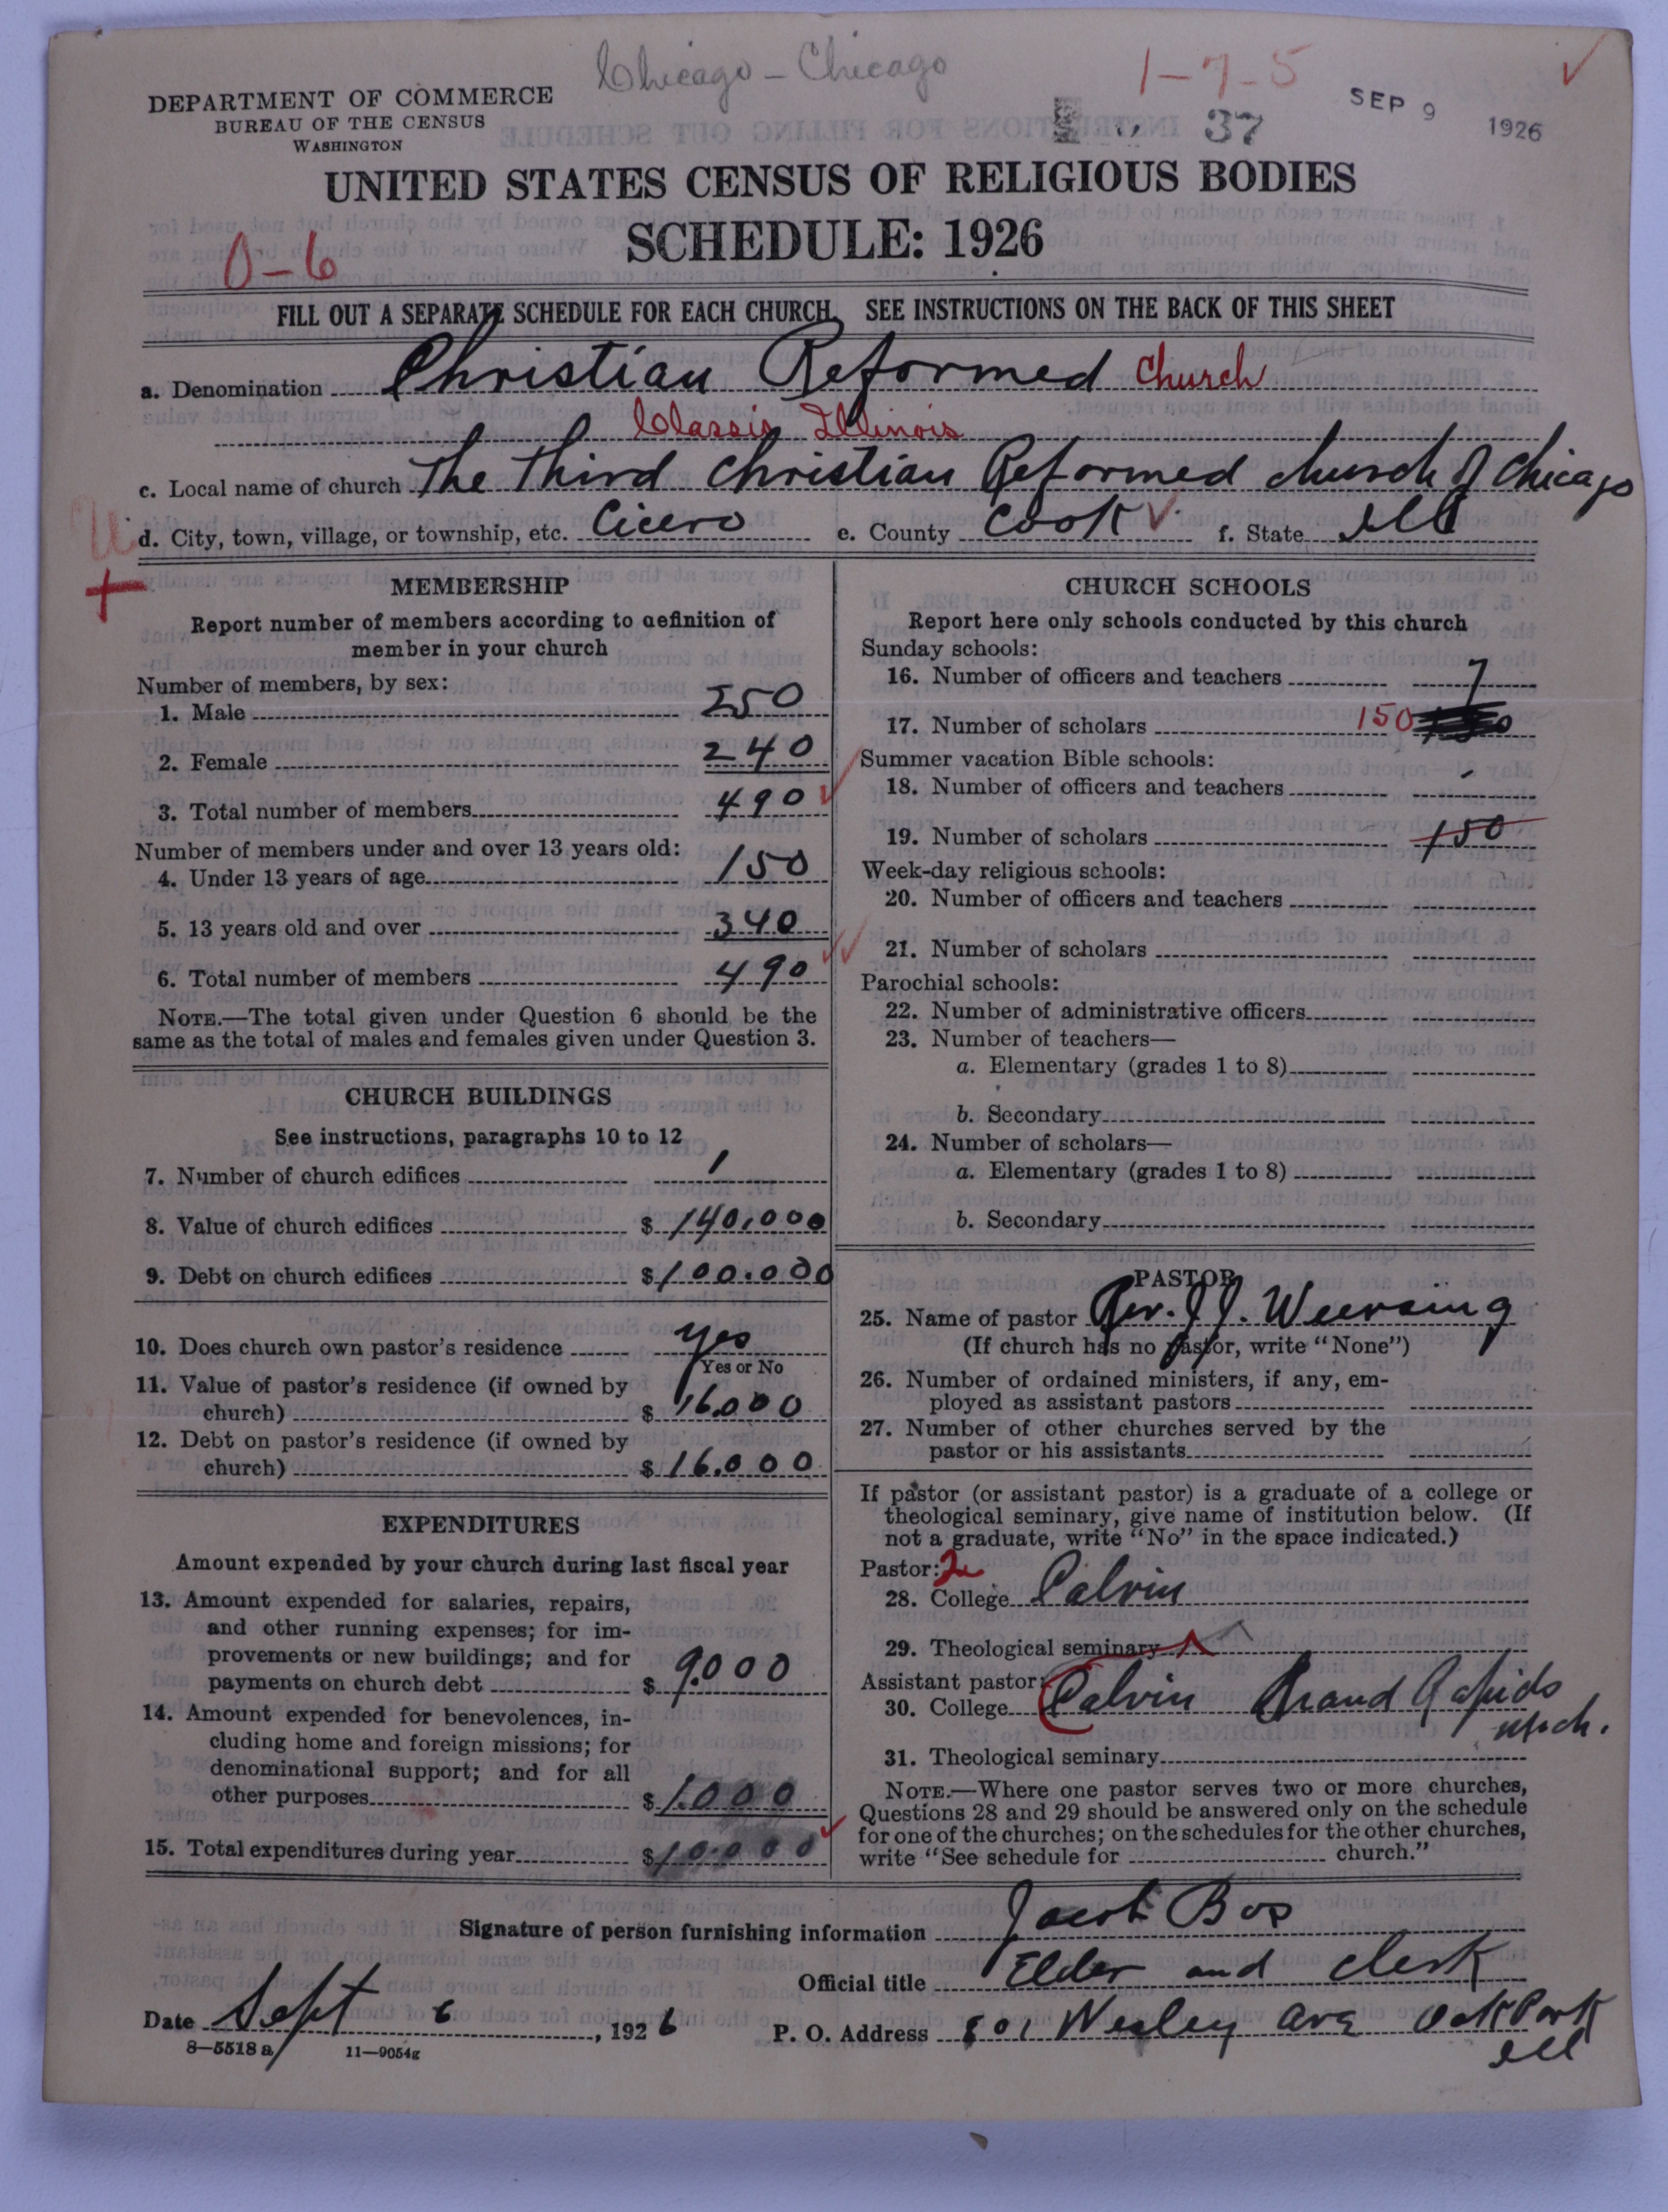 Chicago - Chicago
1-7-5
DEPARTMENT OF COMMERCE
BUREAU OF THE CENSUS
WASHINGTON
37
SEP 9 1926
UNITED STATES CENSUS OF RELIGIOUS BODIES
SCHEDULE: 1926
0-6
FILL OUT A SEPARATE SCHEDULE FOR EACH CHURCH. SEE INSTRUCTIONS ON THE BACK OF THIS SHEET
a. Denomination Christian Reformed Church
Classis Illinois
c. Local name of church The Third Christian Reformed church of Chicago
d. City, town, village, or township, etc. Cicero e. County Cook f. State Ill
MEMBERSHIP
Report number of members according to definition of
member in your church
Number of members, by sex:
1. Male 250
2. Female 240
3. Total number of members 490
Number of members under and over 13 years old:
4. Under 13 years of age 150
5. 13 years old and over 340
6. Total number of members 490
NOTE.—The total given under Question 6 should be the
same as the total of males and females given under Question 3.
CHURCH BUILDINGS
See instructions, paragraphs 10 to 12
7. Number of church edifices 1
8. Value of church edifices $ 140,000
9. Debt on church edifices $ 100.000
10. Does church own pastor's residence yes
Yes or No
11. Value of pastor's residence (if owned by
church) $ 16.000
12. Debt on pastor's residence (if owned by
church) $ 16.000
EXPENDITURES
Amount expended by your church during last fiscal year
13. Amount expended for salaries, repairs,
and other running expenses; for im-
provements or new buildings; and for
payments on church debt $ 9.000
14. Amount expended for benevolences, in-
cluding home and foreign missions; for
denominational support; and for all
other purposes $ 1.000
15. Total expenditures during year $ 10.000
CHURCH SCHOOLS
Report here only schools conducted by this church
Sunday schools:
16. Number of officers and teachers 7
17. Number of scholars 150
Summer vacation Bible schools:
18. Number of officers and teachers
19. Number of scholars 150
Week-day religious schools:
20. Number of officers and teachers
21. Number of scholars
Parochial schools:
22. Number of administrative officers
23. Number of teachers—
a. Elementary (grades 1 to 8)
b. Secondary
24. Number of scholars—
a. Elementary (grades 1 to 8)
b. Secondary
PASTOR
25. Name of pastor Rev. J. J. Weersing
(If church has no pastor, write "None")
26. Number of ordained ministers, if any, em-
ployed as assistant pastors
27. Number of other churches served by the
pastor or his assistants
If pastor (or assistant pastor) is a graduate of a college or
theological seminary, give name of institution below. (If
not a graduate, write "No" in the space indicated.)
Pastor: 2
28. College Calvin
29. Theological seminary
Assistant pastor:
30. College Calvin Grand Rapids
Mich.
31. Theological seminary
NOTE.—Where one pastor serves two or more churches,
Questions 28 and 29 should be answered only on the schedule
for one of the churches; on the schedules for the other churches,
write "See schedule for church."
Signature of person furnishing information Jacob Bos
Official title Elder and Clerk
Date Sept 6, 1926 P. O. Address 801 Wesley Ave Oak Park
Ill
8—5518 a 11—9054g